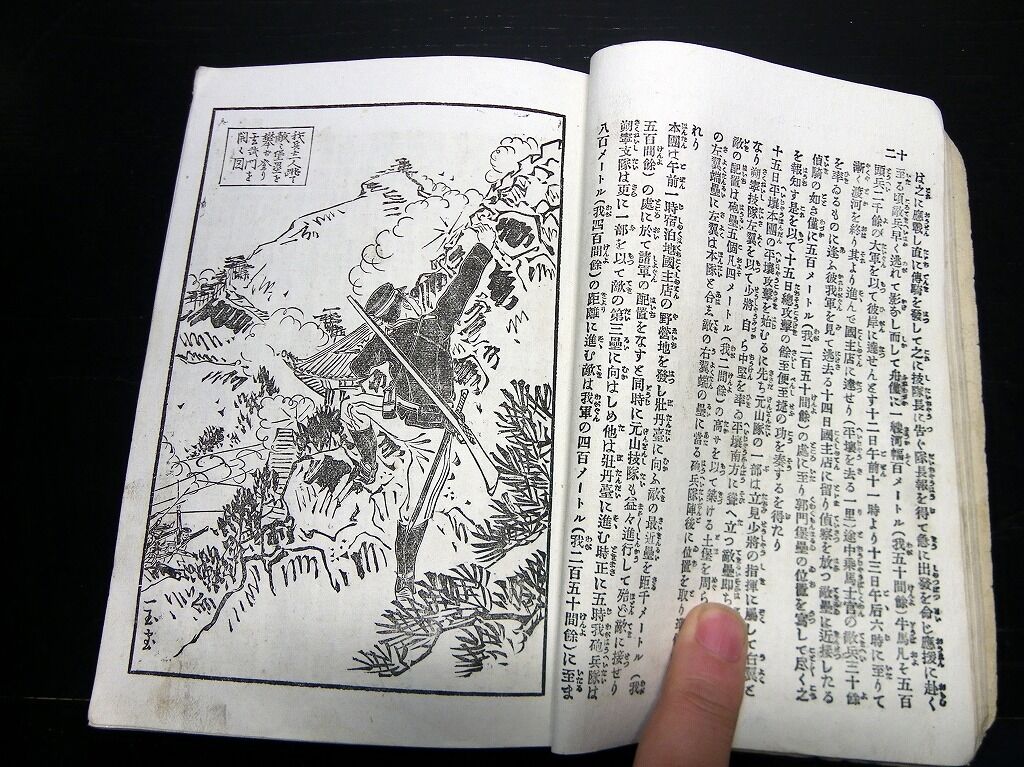 十二
は之に應戰し直に傳騎を發して之に技隊長に告ぐ隊長報を得て急に出發を命じ應援に赴く
至る頃敵兵早く逃れて影なし而して
頭兵二千餘の大軍を以て彼岸に達せんとす十二日午前十一時より十三日午后六時に至りて
漸く渡河を終り其より進んで國主店に達せり(平壤を去る一里)途中乘馬士官の敵兵三十餘
を率ゐるものに逢ふ彼我軍を見て逃去る十四日國主店に留り偵察を放つ敵壘に近接したる
偵騎の如き僅に五百メートル(我二百五十間餘)の處に至り郭門堡壘の位置を寫して尽く之
を報知す是を以て十五日總攻擊の餘至便至捷の功を奏するを得たり
十五日平壤本團の平壤攻擊を始むるに先ち元山隊の一部は立見少將の指揮に屬して右翼と
なり朔寧技隊左翼を以つて少將自ら中堅を率ゐ平壤南方に聳へ立つ敵壘即ち
敵の配置は砲壘五個凡四メートル(我二間餘)の高サを以て築ける土堡を周ら
の左翼端壘に左翼は本隊と合ま敵の右翼端の壘に當る砲兵隊陣後に位置を取り
れり
本團は午前一時宿泊地國主店の野營地を發し牡丹臺に向ふ敵の最近壘を距千メートル(我
五百間餘)の處に於て諸軍の配置をなすと同時に元山技隊も益々進行して殆ど敵に接せり
朔寧支隊は更に一部を以て敵の第三壘に向はしめ他は牡丹臺に進む時正に五時我砲兵隊は
八百メートル(我四百間餘)の距離に進む敵は我軍の四百メートル(我二百五十間餘)に至ま
我兵三人飛て
敵の堡壘を
攀ぢ登り
玄武門を
開く図